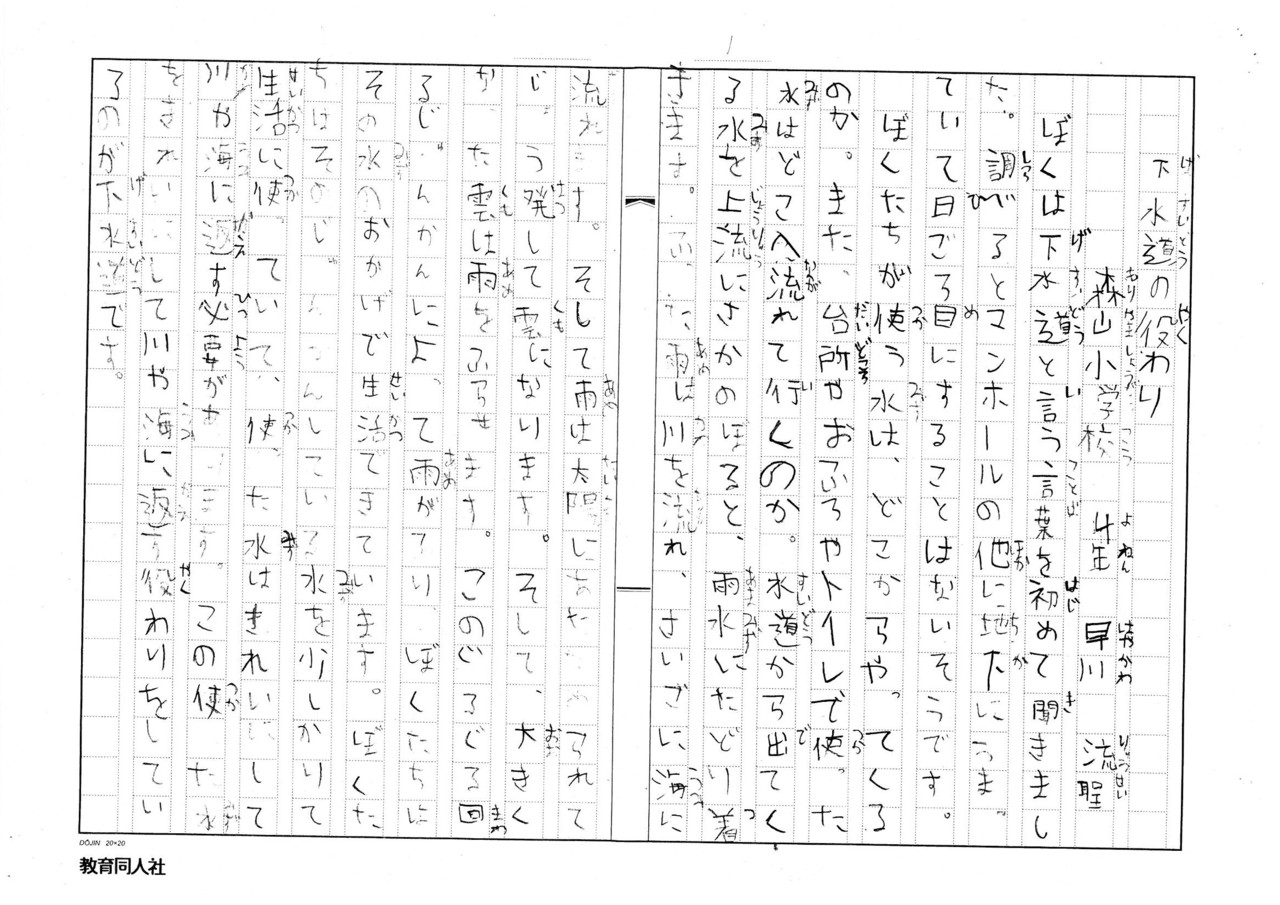 下水道の役わり
森山小学校 4年 早川 流聖
ぼくは下水道と言う言葉を初めて聞きまし
た。調べるとマンホールの他に地下にうま
ていて日ごろ目にすることはないそうです。
ぼくたちが使う水は、どこからやってくる
のか。また、台所やおふろやトイレで使った
水はどこへ流れて行くのか。水道から出てく
る水を上流にさかのぼると、雨水にたどり着
きます。ふった雨は川を流れ、さいごに海に
流れます。そして雨は太陽にあたためられて
じょう発して雲になります。そして、大きく
た雲は雨をふらせます。このぐるぐる回
るじゅんかんによって雨がふり、ぼくたちは
その水のおかげで生活できています。ぼくた
ちはそのじゅんかんしている水を少しかりて
生活に使っていて、使った水はきれいにして
川や海に返す必要があります。この使った水
をきれいにして川や海に返す役わりをしてい
るのが下水道です。
DŌJIN 20×20
教育同人社